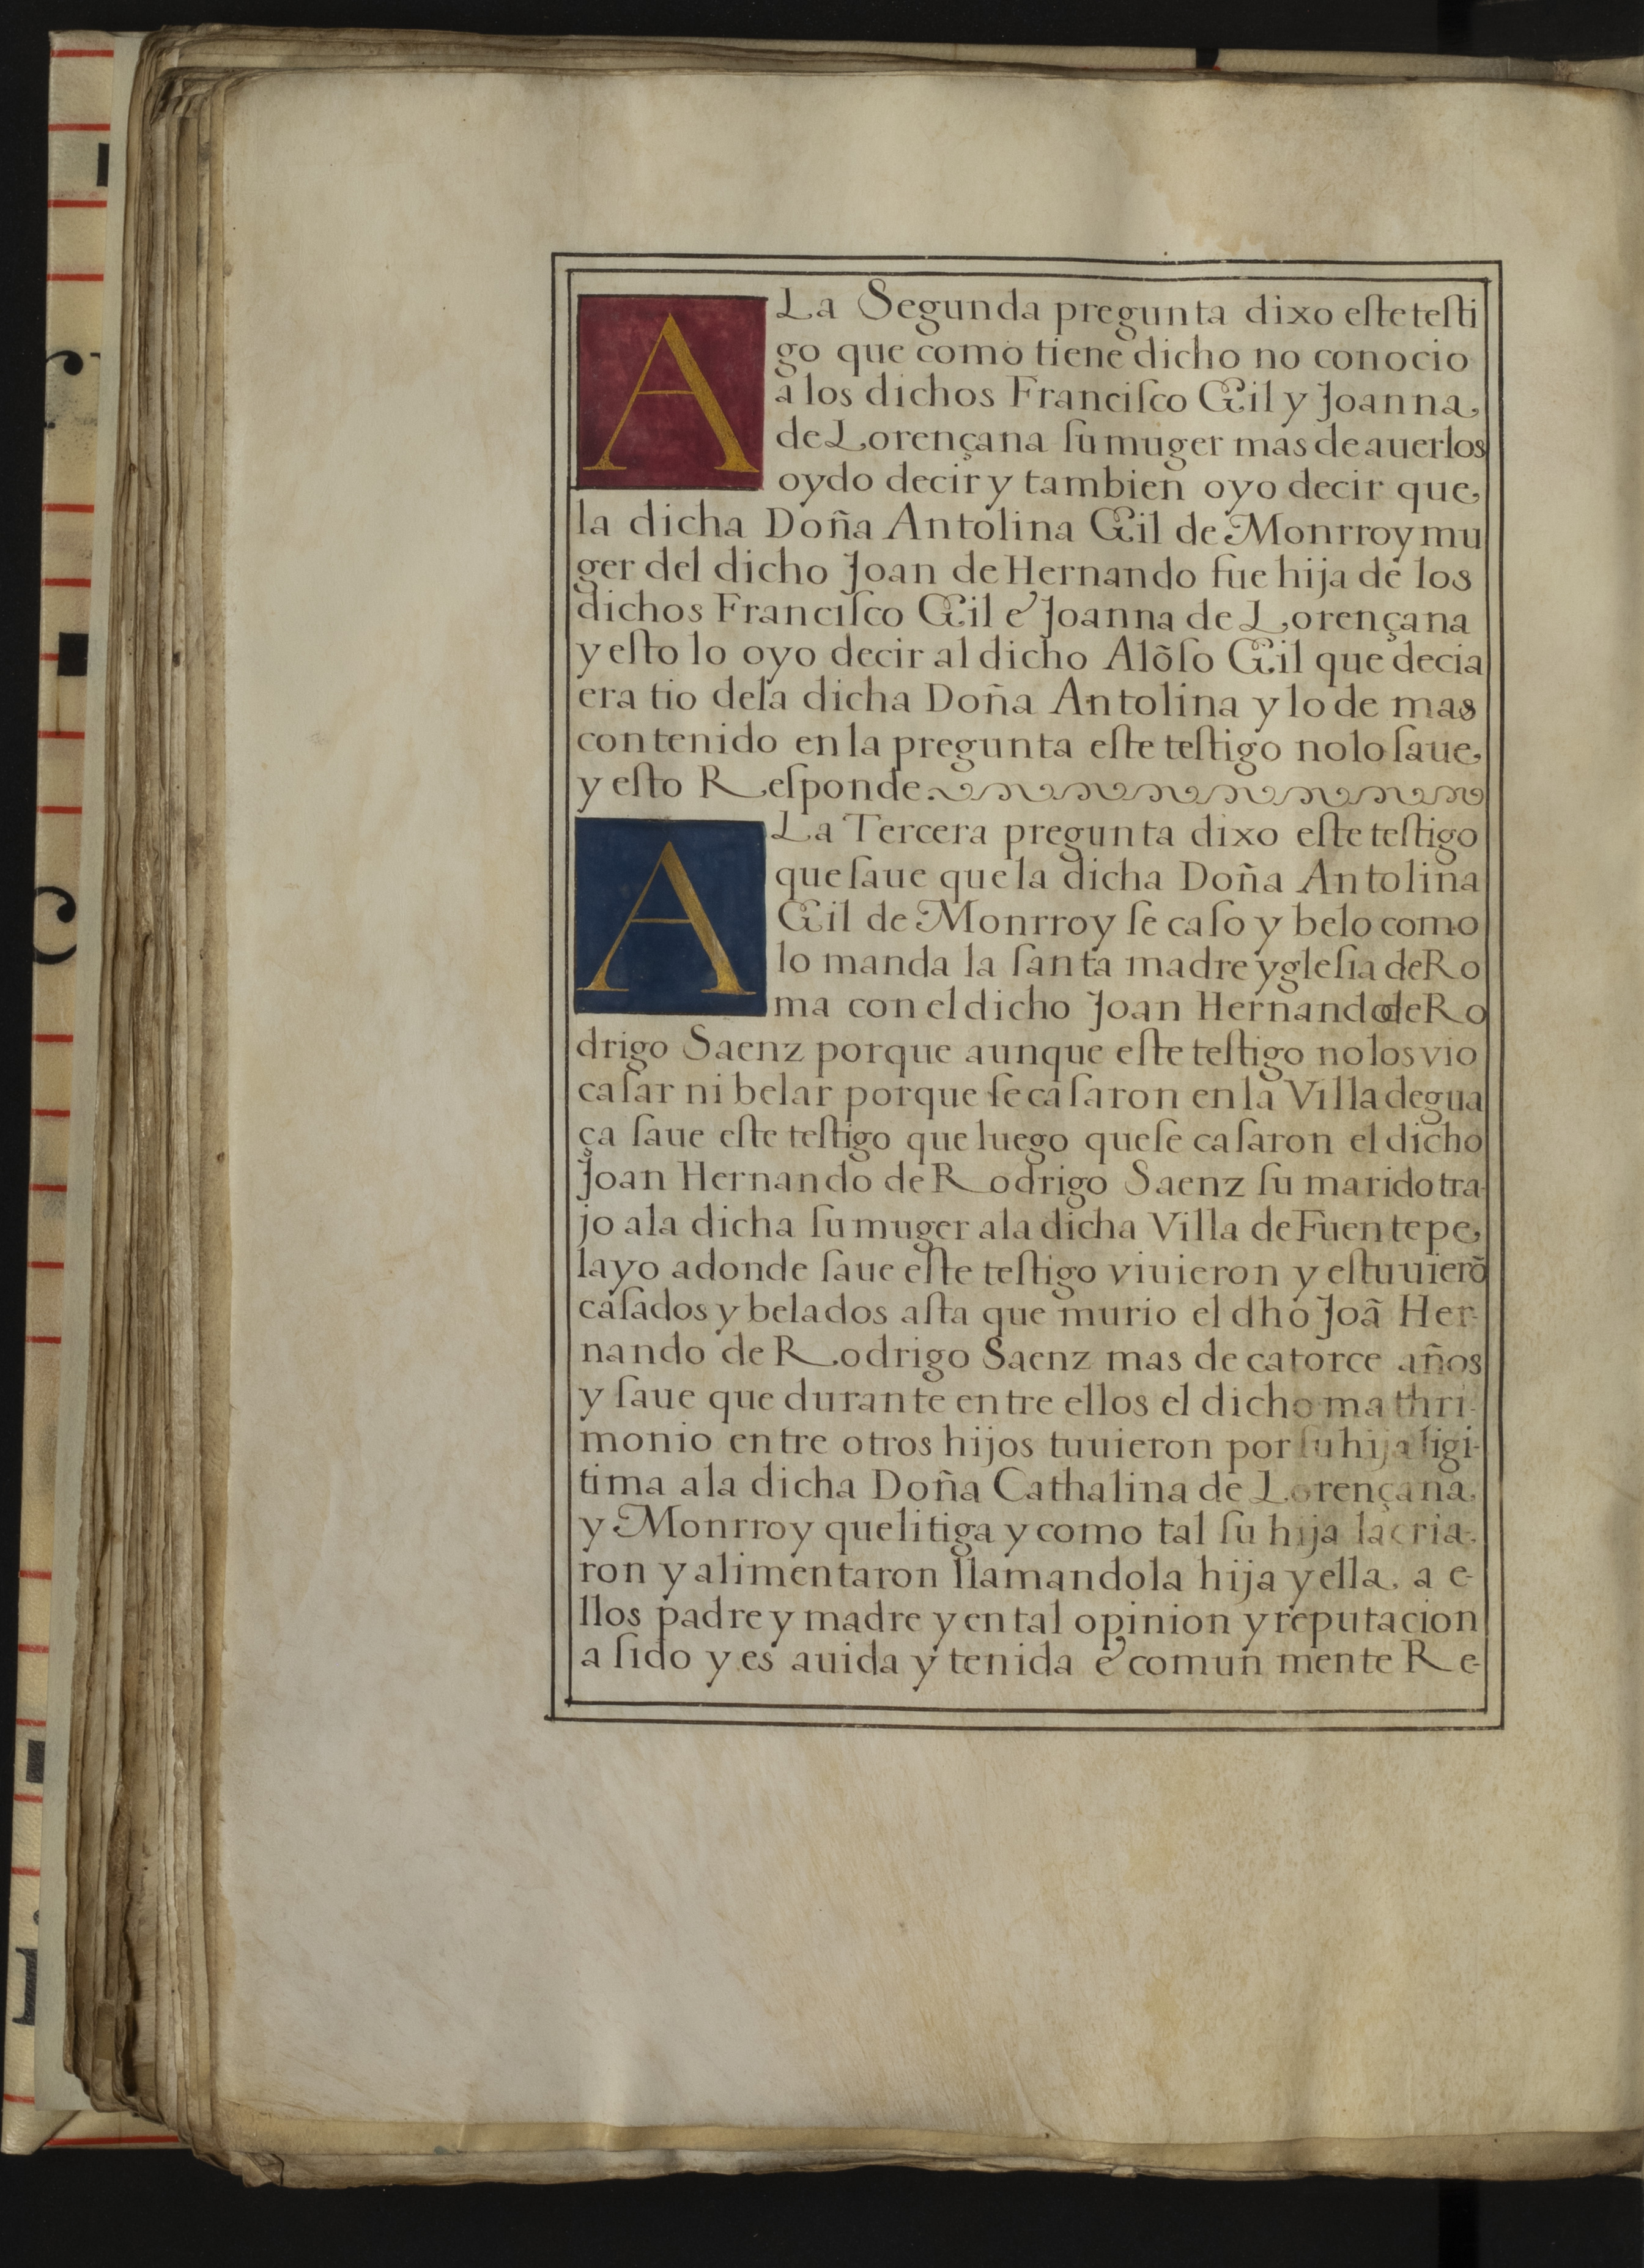 A La Segunda pregunta dixo eſte teſti
go que como tiene dicho no conocio
a los dichos Franciſco Gil y Joanna
de Lorençana ſu muger mas de auerlos
oydo decir y tambien oyo decir que
la dicha Doña Antolina Gil de Monrroy mu
ger del dicho Joan de Hernando fue hija de los
dichos Franciſco Gil e Joanna de Lorençana
y eſto lo oyo decir al dicho Alõſo Gil que decia
era tio dela dicha Doña Antolina y lo de mas
contenido en la pregunta eſte teſtigo no lo ſaue
y eſto Reſponde.
A La Tercera pregunta dixo eſte teſtigo
que ſaue que la dicha Doña Antolina
Gil de Monrroy ſe caſo y belo como
lo manda la ſanta madre ygleſia de Ro
ma con el dicho Joan Hernando de Ro
drigo Saenz porque aunque eſte teſtigo no los vio
caſar ni belar porque ſe caſaron en la Villa degua
ça ſaue eſte teſtigo que luego que ſe caſaron el dicho
Joan Hernando de Rodrigo Saenz ſu marido tra-
jo ala dicha ſu muger ala dicha Villa de Fuentepe
layo adonde ſaue eſte teſtigo viuieron y eſtuuierõ
caſados y belados aſta que murio el dho Joã Her-
nando de Rodrigo Saenz mas de catorce años
y ſaue que durante entre ellos el dicho mathri-
monio entre otros hijos tuuieron por ſu hija ligi-
tima ala dicha Doña Cathalina de Lorençana
y Monrroy que litiga y como tal ſu hija la cria-
ron y alimentaron llamandola hija y ella a e-
llos padre y madre y en tal opinion y reputacion
a ſido y es auida y tenida e comun mente Re-